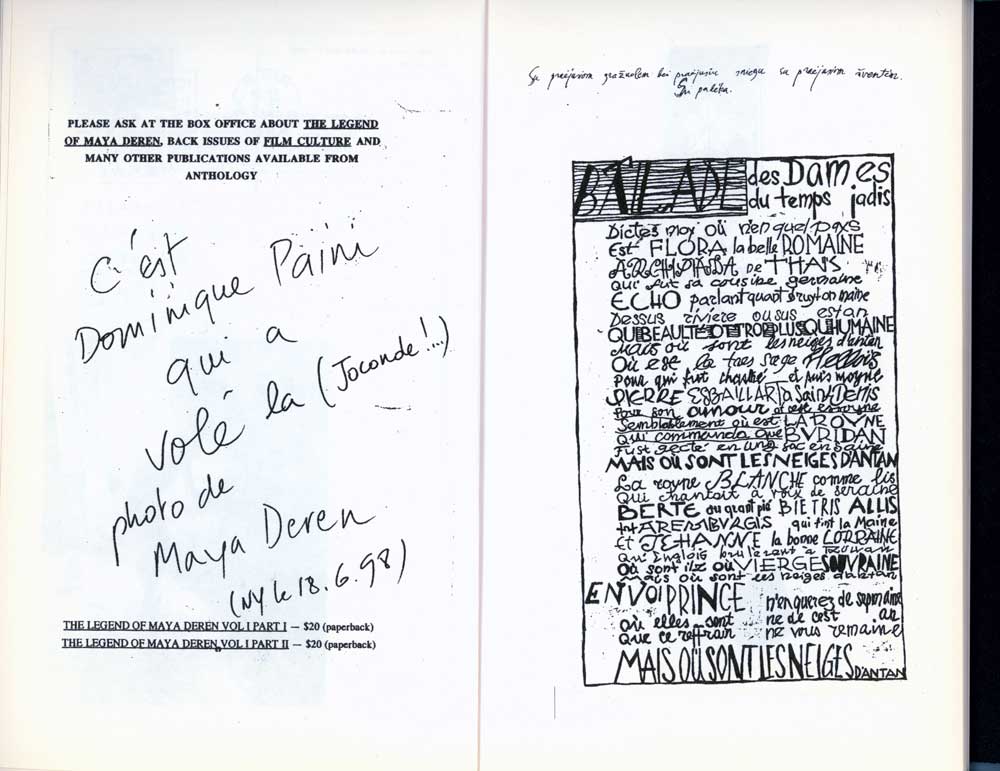 PLEASE ASK AT THE BOX OFFICE ABOUT THE LEGEND
OF MAYA DEREN, BACK ISSUES OF FILM CULTURE AND
MANY OTHER PUBLICATIONS AVAILABLE FROM
ANTHOLOGY
C'est
Dominique Païni
qui a
volé la (Joconde!...)
photo de
Maya Deren
(NY le 18.6.98)
THE LEGEND OF MAYA DEREN VOL I PART I — $20 (paperback)
THE LEGEND OF MAYA DEREN, VOL I PART II — $20 (paperback)
Su praėjusiom gražuolėm bei praėjusiu sniegu su praėjusiom šventėm.
BALLADE des DAMES
du temps jadis
Dictes moy où n'en quel pays
Est FLORA la belle ROMAINE
ARCHIPIADA DE THAIS
qui fut sa cousine germaine
ECHO parlant quant bruyt on maine
Dessus rivière ou sus estan
QUI BEAULTÉ OT TROP PLUS QU'HUMAINE
Mais où sont les neiges d'antan
Où est la tres sage Hellois
Pour qui fut chastré et puis moyne
PIERRE ESBAILLART A SAINT-Denis
Pour son amour ot cest essoyne
Semblablement où est LA ROYNE
Qui commanda que BURIDAN
Fust gecté en ung sac en Saine
MAIS OÙ SONT LES NEIGES D'ANTAN
La royne BLANCHE comme lis
Qui chantoit à voix de seraine
BERTE au grant pié BIETRIS ALLIS
HAREMBURGIS qui tint la Maine
Et JEHANNE la bonne LORRAINE
Qu'Englois brulerent a Rouan
Où sont ilz où VIERGE SOUVRAINE
Mais où sont les neiges d'antan
ENVOI PRINCE n'enquerez de sepmaine
où elles sont ne de cest an
Que ce reffrain ne vous remaine
MAIS OÙ SONT LES NEIGES D'ANTAN